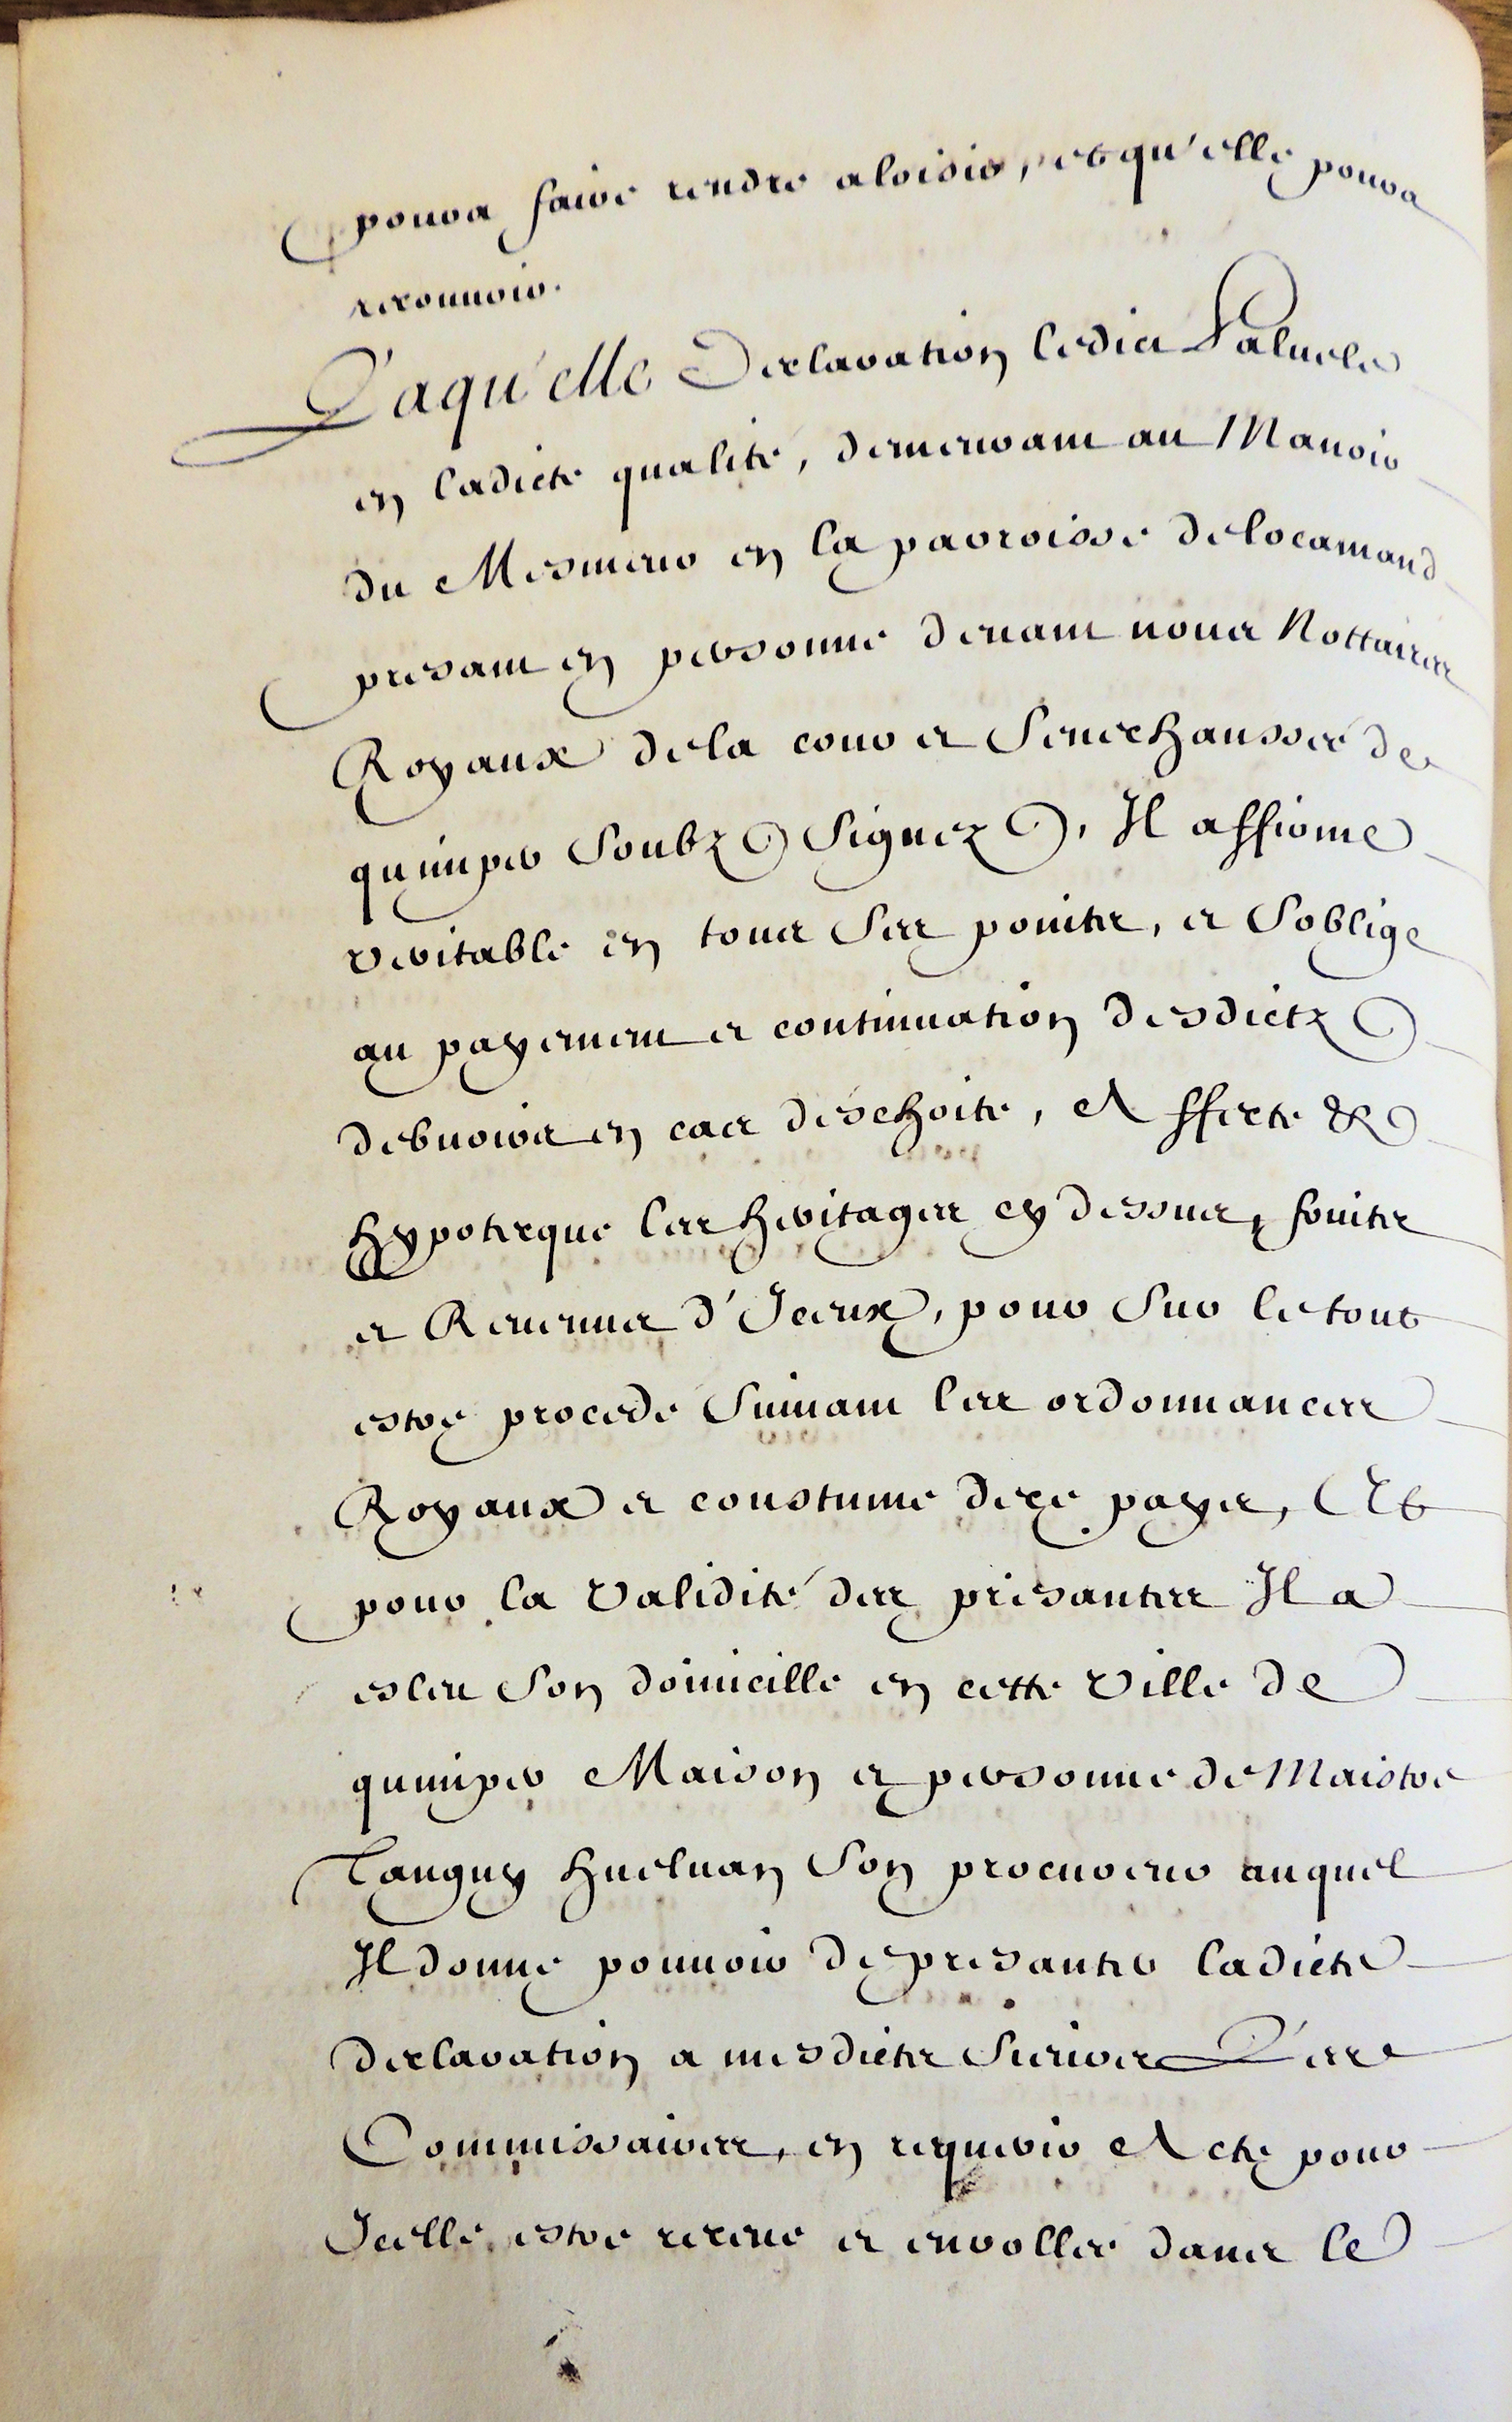 poura faire rendre a loisir, et qu'elle poura
reconnoir.
Laqu'elle Declaration ledict Saluden
en ladicte qualité, demeurant au Manoir
du Mesmeur en la parroisse de locamand
presant en personne devant nous Nottaires
Royaux de la cour et Senechaussée de
quimper Soubz Signez, Il affirme
veritable en tous Ses points, et S'oblige
au payement et continuation desdictz
debuoirs en cas deschoite, Affecte &
hypotecque les heritages cy dessus, fruits
et Revenus d'Iceux, pour Sur le tout
estre procedé Suivant les ordonnances
Royaux et coustume de ce pays, Et
pour la validité des presantes Il a
esleu Son domicille en cette ville de
quimper Maison et personne de Maistre
Tanguy huelvan Son procureur auquel
Il donne pouvoir de presanter ladicte
declaration a mesdicts Sieurs Les
Commissaires, en requerir Acte pour
Icelle estre receue et enrollee dans le